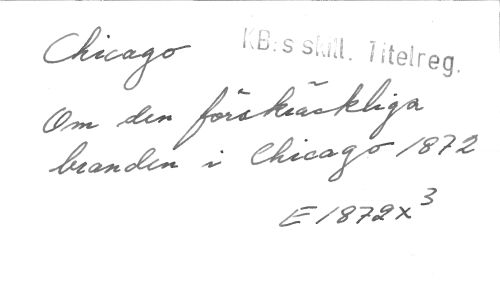 Chicago
KB:s skill. Titelreg.
Om den förskräckliga
branden i Chicago 1872
E 1872 x³